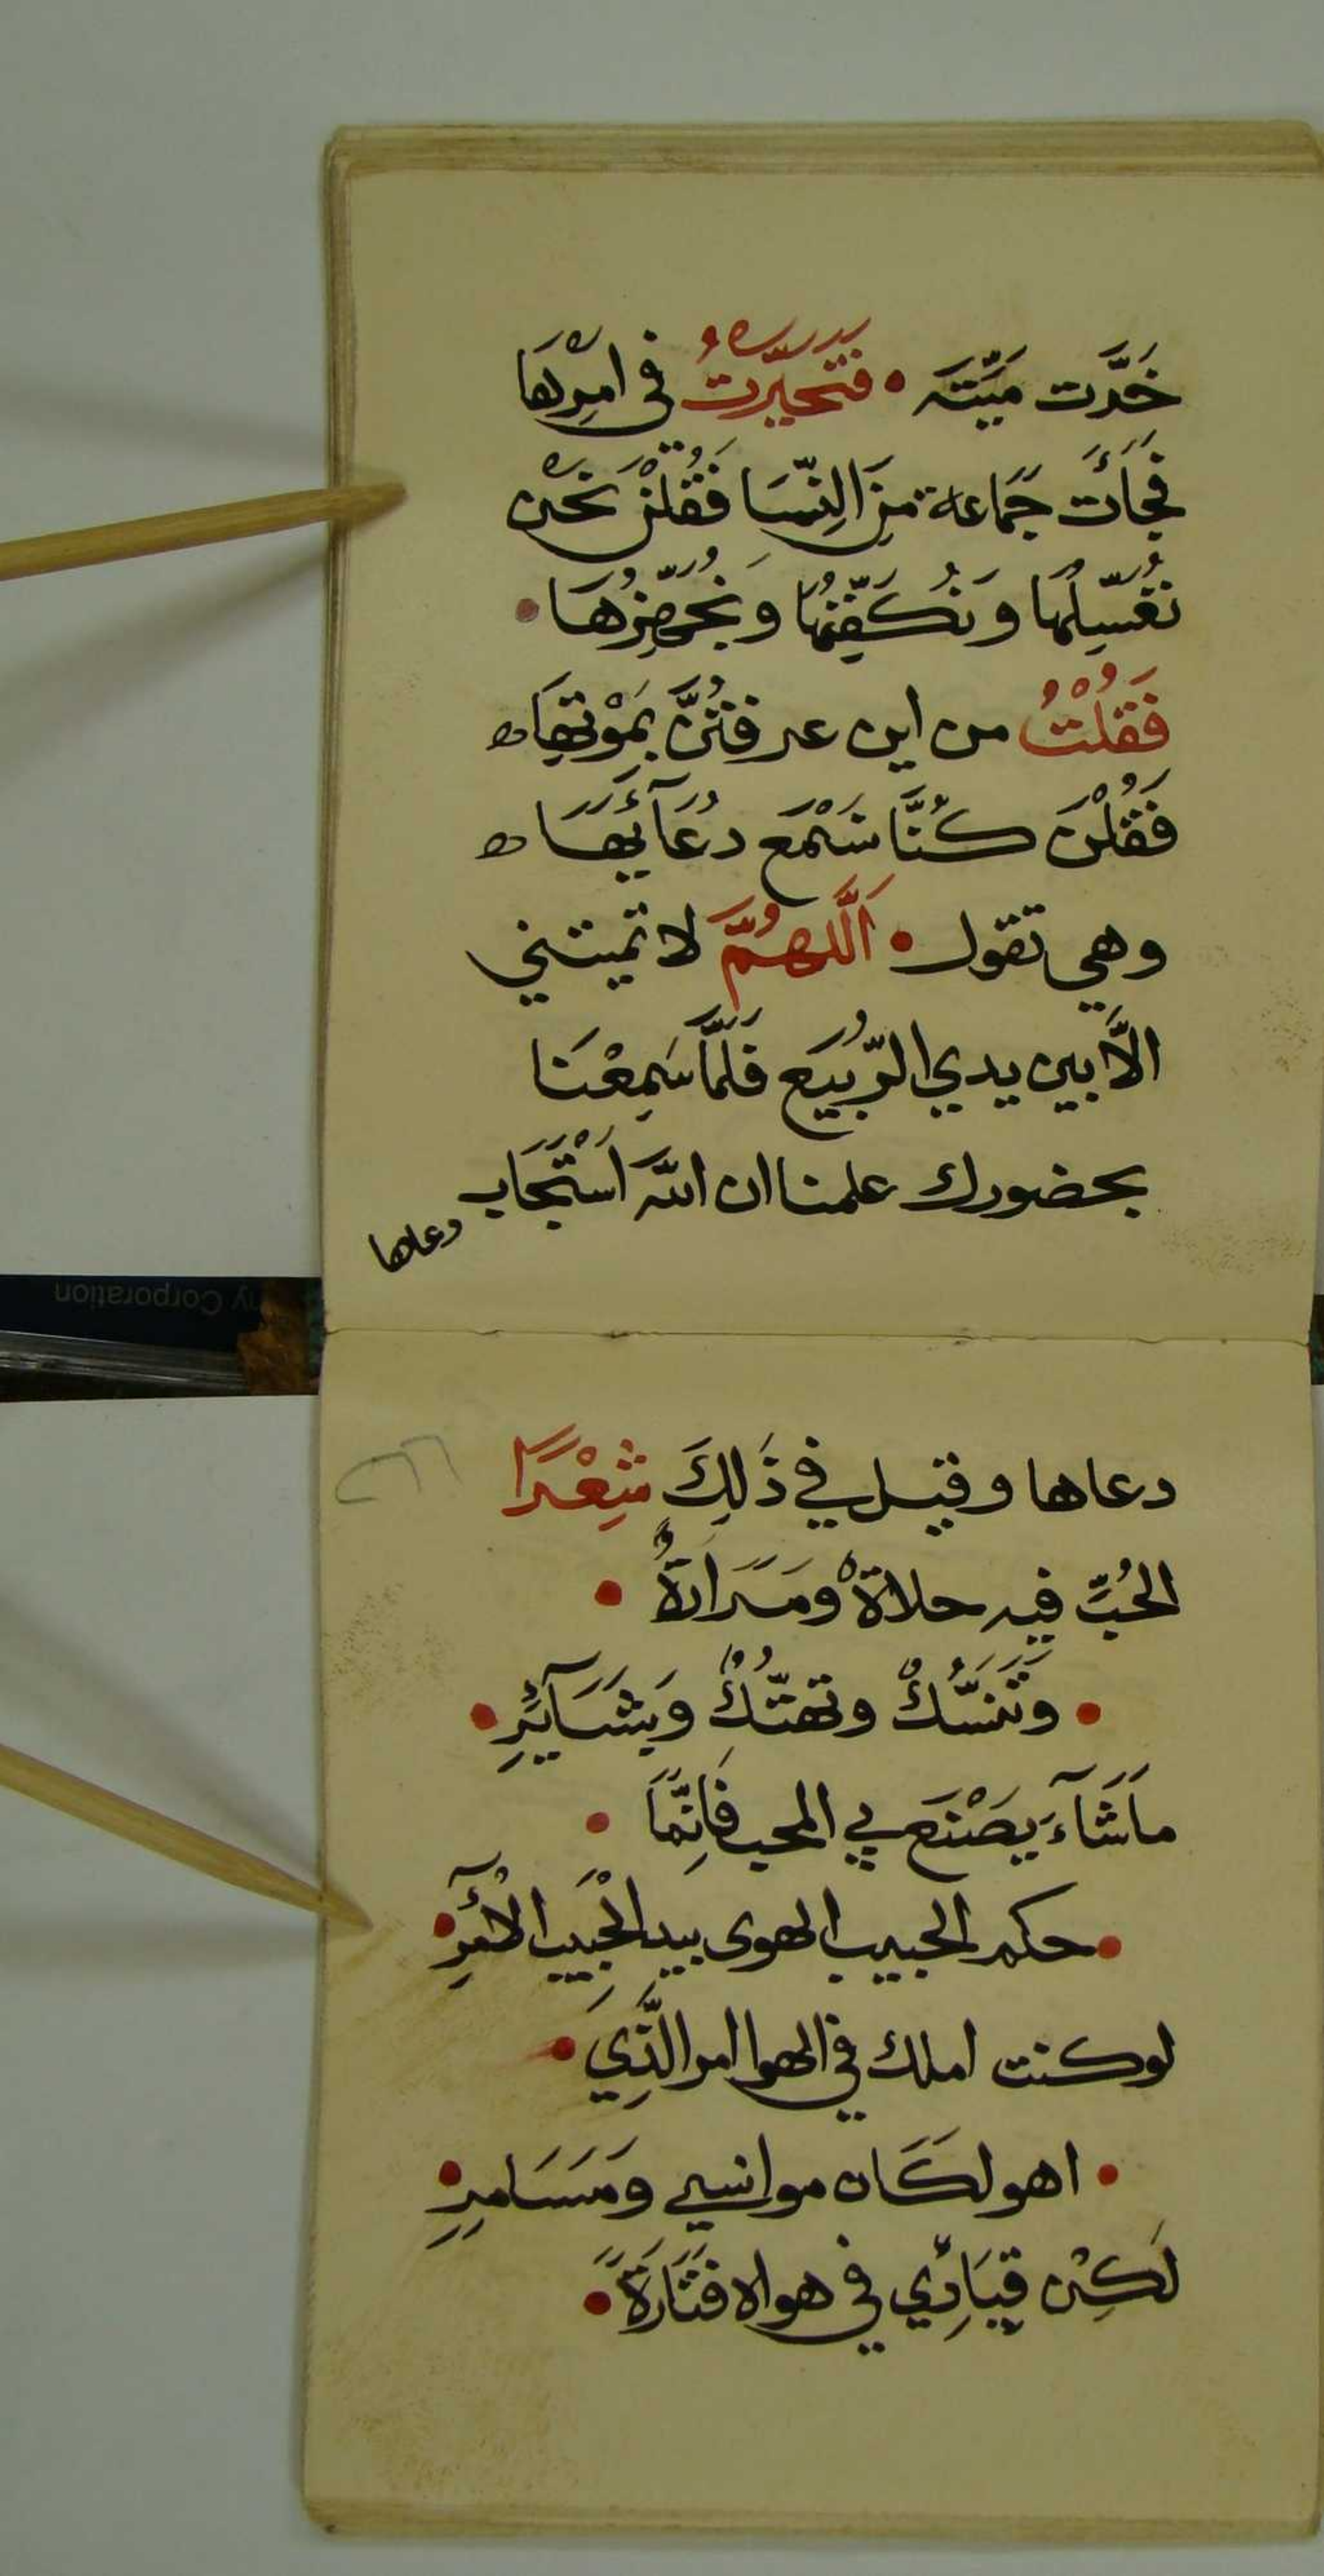 خَرَّت مَيِّتَه • فَتَحَيَّرْتُ في امرِهَا
فَجَأَت جَمَاعة مِنَ النِّسَا فَقُلْنَ نَحْن
نُغَسِّلُهَا وَنُكَفِّنُهَا وَنُجَهِّزُهَا •
فَقُلْتُ من اين عرفتُنَّ بمَوْتِهَا ه
فَقُلْنَ كُنَّا نَسْمَع دُعَآئِهَا ه
وهي تقول • اَللَّهُمَّ لا تميتني
الَّا بين يدي الرُّبَيع فَلَمَّا سَمِعْنَا
بحضورك علمنا ان الله اَسْتَجَاب
دعاها
دعاها وقيل في ذَلِكَ شِعْرًا
الحُبِّ فيه حلاةٌ ومَرَارةٌ •
• وَتَنَسُّكٌ وتهتُّكٌ وَبَشَآئِرِ •
مَاشَآءَ يَصْنَع بي المحب فَاِنَّمَا •
• حكم الحبيب الهوى بيد الحَبِيب الآمِرِ •
لوكنت املك في الهوا امر الَّذِي •
• اهو لَكَان موانسي وَمَسَامِرِ •
لَكِنْ قِيَادِي في هواه فَتَارَةً •
ny Corporation